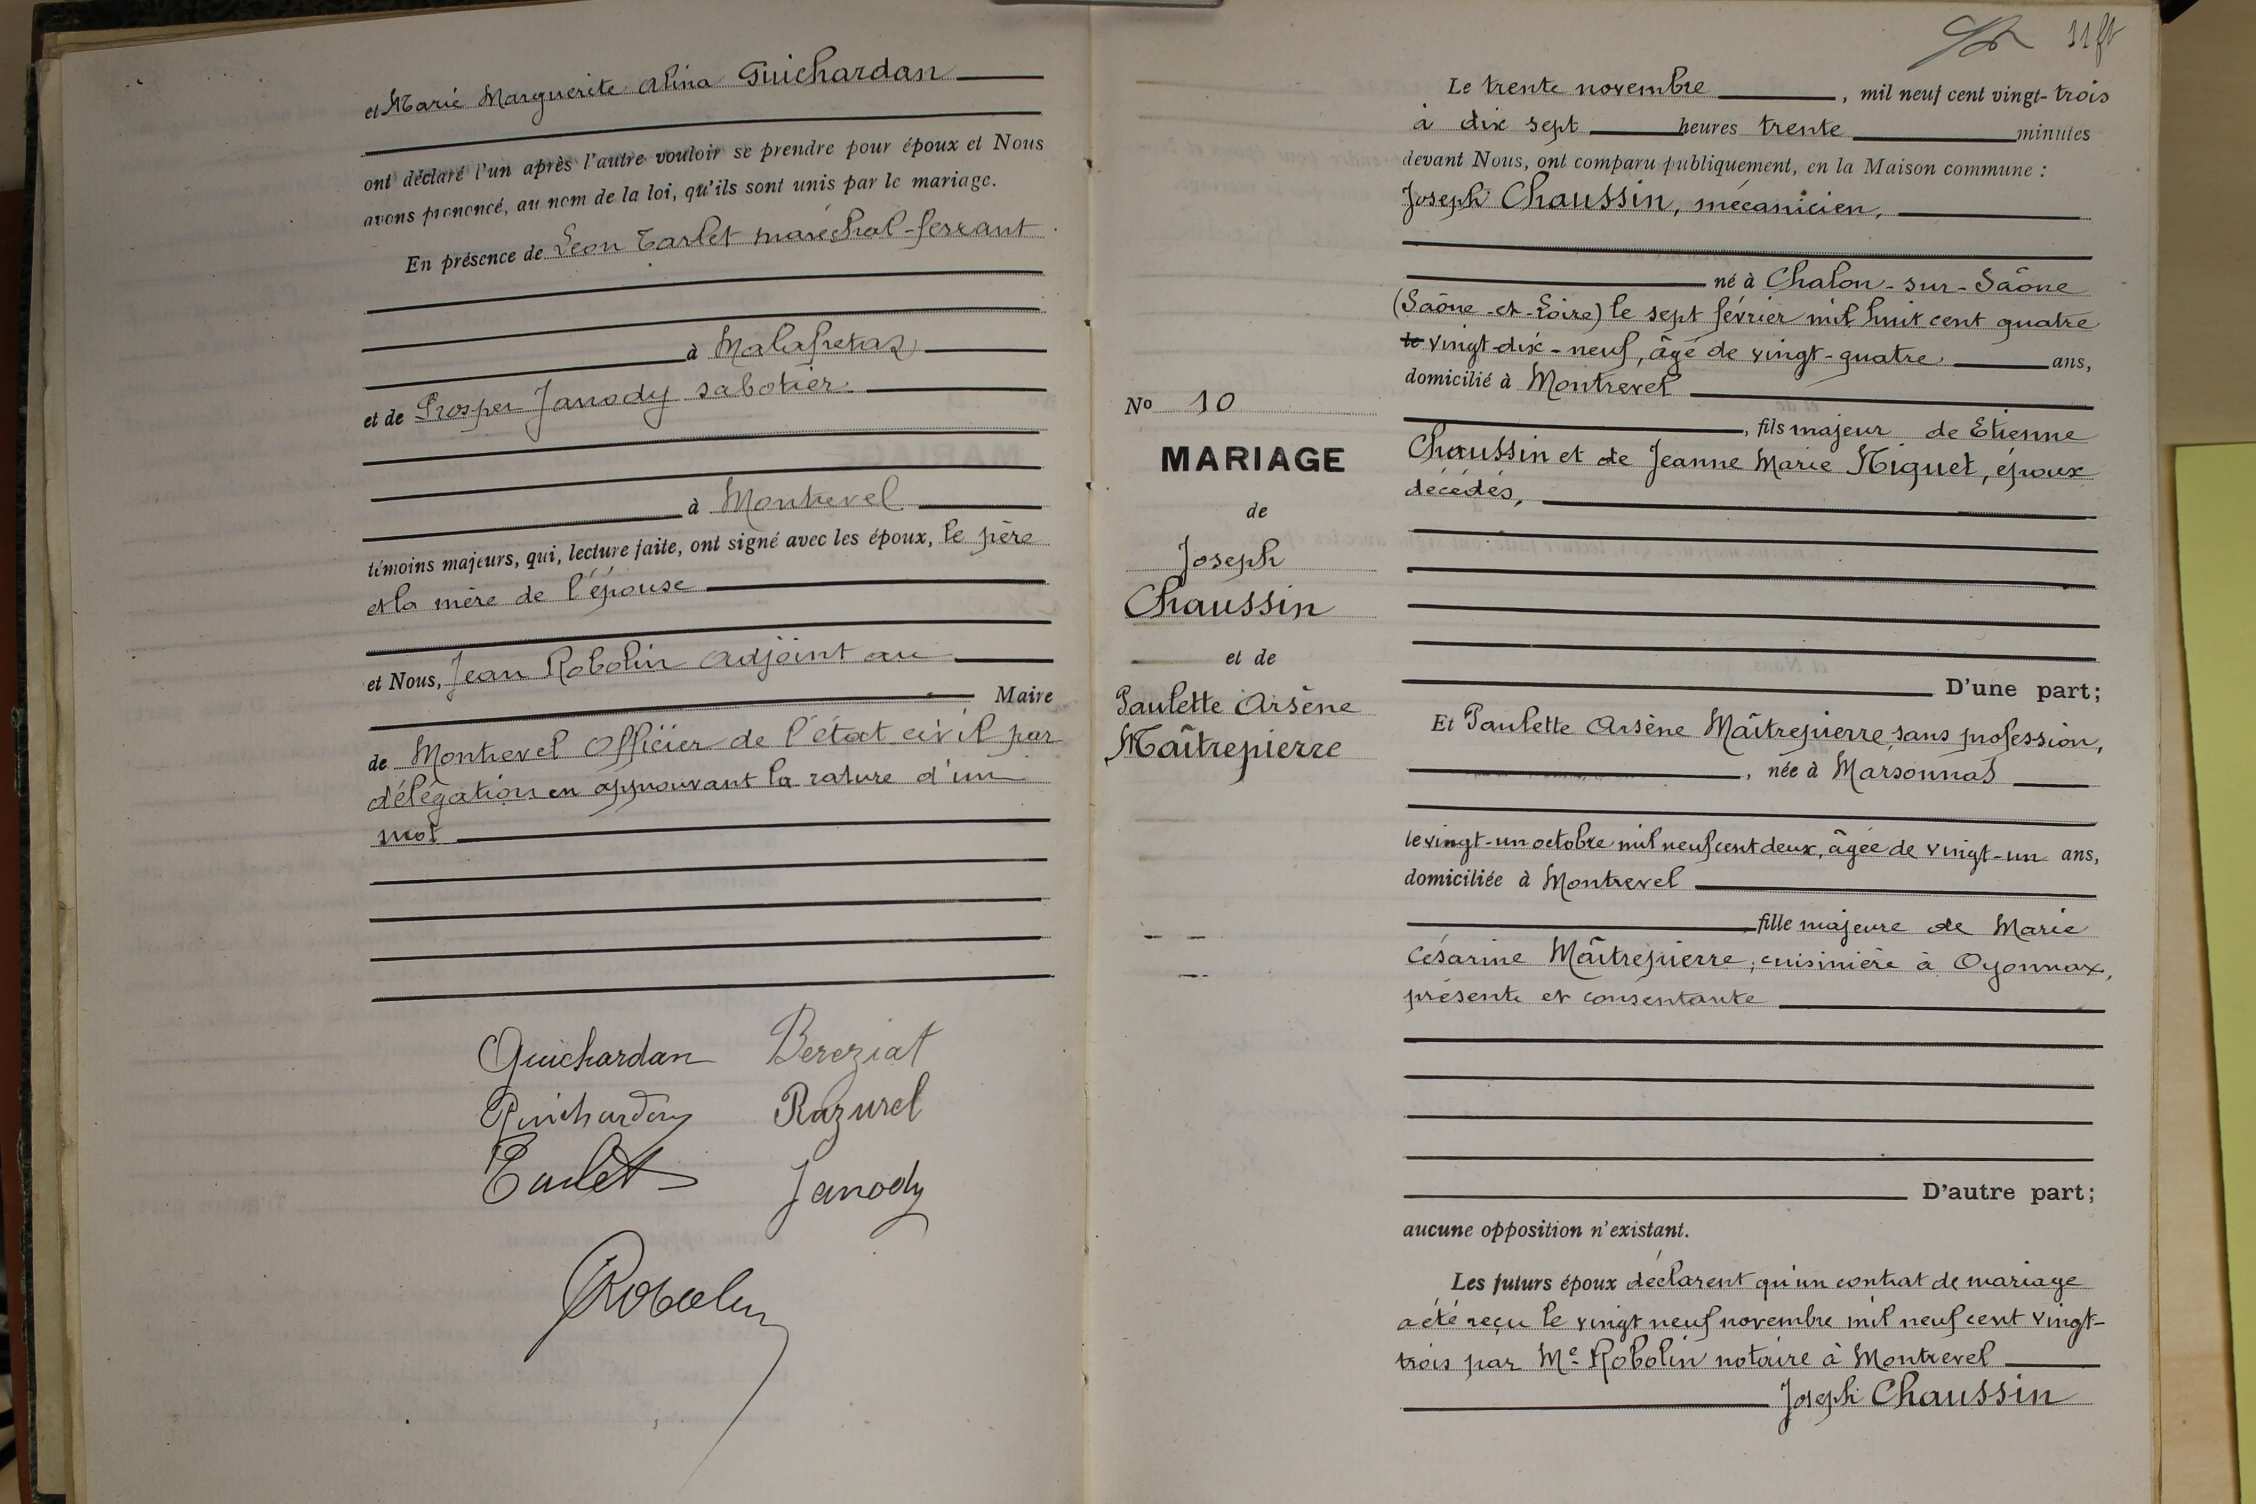 et Marie Marguerite Alina Guichardan
ont déclaré l'un après l'autre vouloir se prendre pour époux et Nous
avons prononcé, au nom de la loi, qu'ils sont unis par le mariage.
En présence de Léon Carlet maréchal-ferrant
à Malafretaz
et de Prosper Janody sabotier
à Montrevel
témoins majeurs, qui, lecture faite, ont signé avec les époux, le père
et la mère de l'épouse
et Nous, Jean Robolin adjoint au
Maire
de Montrevel Officier de l'état civil par
délégation en approuvant la rature d'un
mot
Guichardan Bereziat
Guichardan Razurel
Carlet Janody
Robolin
11 ft
Le trente novembre , mil neuf cent vingt-trois
à dix sept heures trente minutes
devant Nous, ont comparu publiquement, en la Maison commune :
Joseph Chaussin, mécanicien,
né à Chalon-sur-Saône
(Saône-et-Loire) le sept février mil huit cent quatre
le vingt-dix-neuf, âgé de vingt-quatre ans,
domicilié à Montrevel
, fils majeur de Etienne
Chaussin et de Jeanne Marie Niguet, époux
décédés,
D'une part;
Et Paulette Arsène Maîtrepierre, sans profession,
, née à Marsonnas
le vingt-un octobre mil neuf cent deux, âgée de vingt-un ans,
domiciliée à Montrevel
fille majeure de Marie
Césarine Maîtrepierre, cuisinière à Oyonnax,
présente et consentante
D'autre part;
aucune opposition n'existant.
Les futurs époux déclarent qu'un contrat de mariage
a été reçu le vingt neuf novembre mil neuf cent vingt-
trois par Me Robolin notaire à Montrevel
Joseph Chaussin
No 10
MARIAGE
de
Joseph
Chaussin
et de
Paulette Arsène
Maîtrepierre